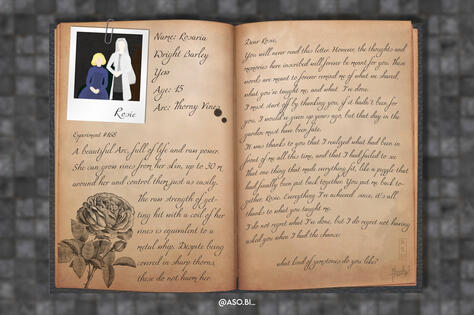 Name: Rosaria
Wright Barley
Yew
Age: 15
Arc: Thorny Vines
Rosie
Experiment #168
A beautiful Arc, full of life and raw power.
She can grow vines from her skin, up to 30 m
around her and control them just as easily.
The raw strength of get-
ting hit with a coil of her
vines is equivalent to a
metal whip. Despite being
covered in sharp thorns,
these do not harm her.
Dear Rosie,
You will never read this letter. However, the thoughts and
memories here inscribed will forever be meant for you. These
words are meant to forever remind me of what we shared,
what you've taught me, and what I've done.
I must start off by thanking you, if it hadn't been for
you, I would've given up years ago, but that day in the
garden must have been fate.
It was thanks to you that I realized what had been in
front of me all this time, and that I had failed to see
that one thing that made everything fit, like a puzzle that
had finally been put back together. You put me back to-
gether, Rosie. Everything I've achieved since, it's all
thanks to what you taught me.
I do not regret what I've done, but I do regret not having
asked you when I had the chance:
what kind of gemstones do you like?
@ASO.BI_